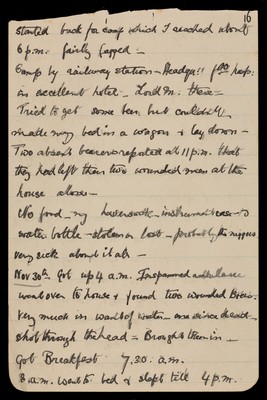 16
started back for camp which I reached about
6 p.m. fairly fagged —
Camp by railway station — Headqrs: for hosp:
in excellent hotel — Lord M. there —
Tried to get some beer but couldn't —
made my bed in a wagon & lay down —
Two absent bearers reported at 11 p.m. that
they had left them two wounded men at the
house alone —
No food — my haversack — instrument case — &
water bottle — stolen or lost — probably the niggers
very sick about it all —
Nov 30th. Got up 4 a.m. Inspanned ambulance
went over to house & found two wounded
very much in want of water — one since dead —
shot through the head = Brought them in —
Got Breakfast 7.30. a.m.
8 a.m. went to bed & slept till 4 p.m.